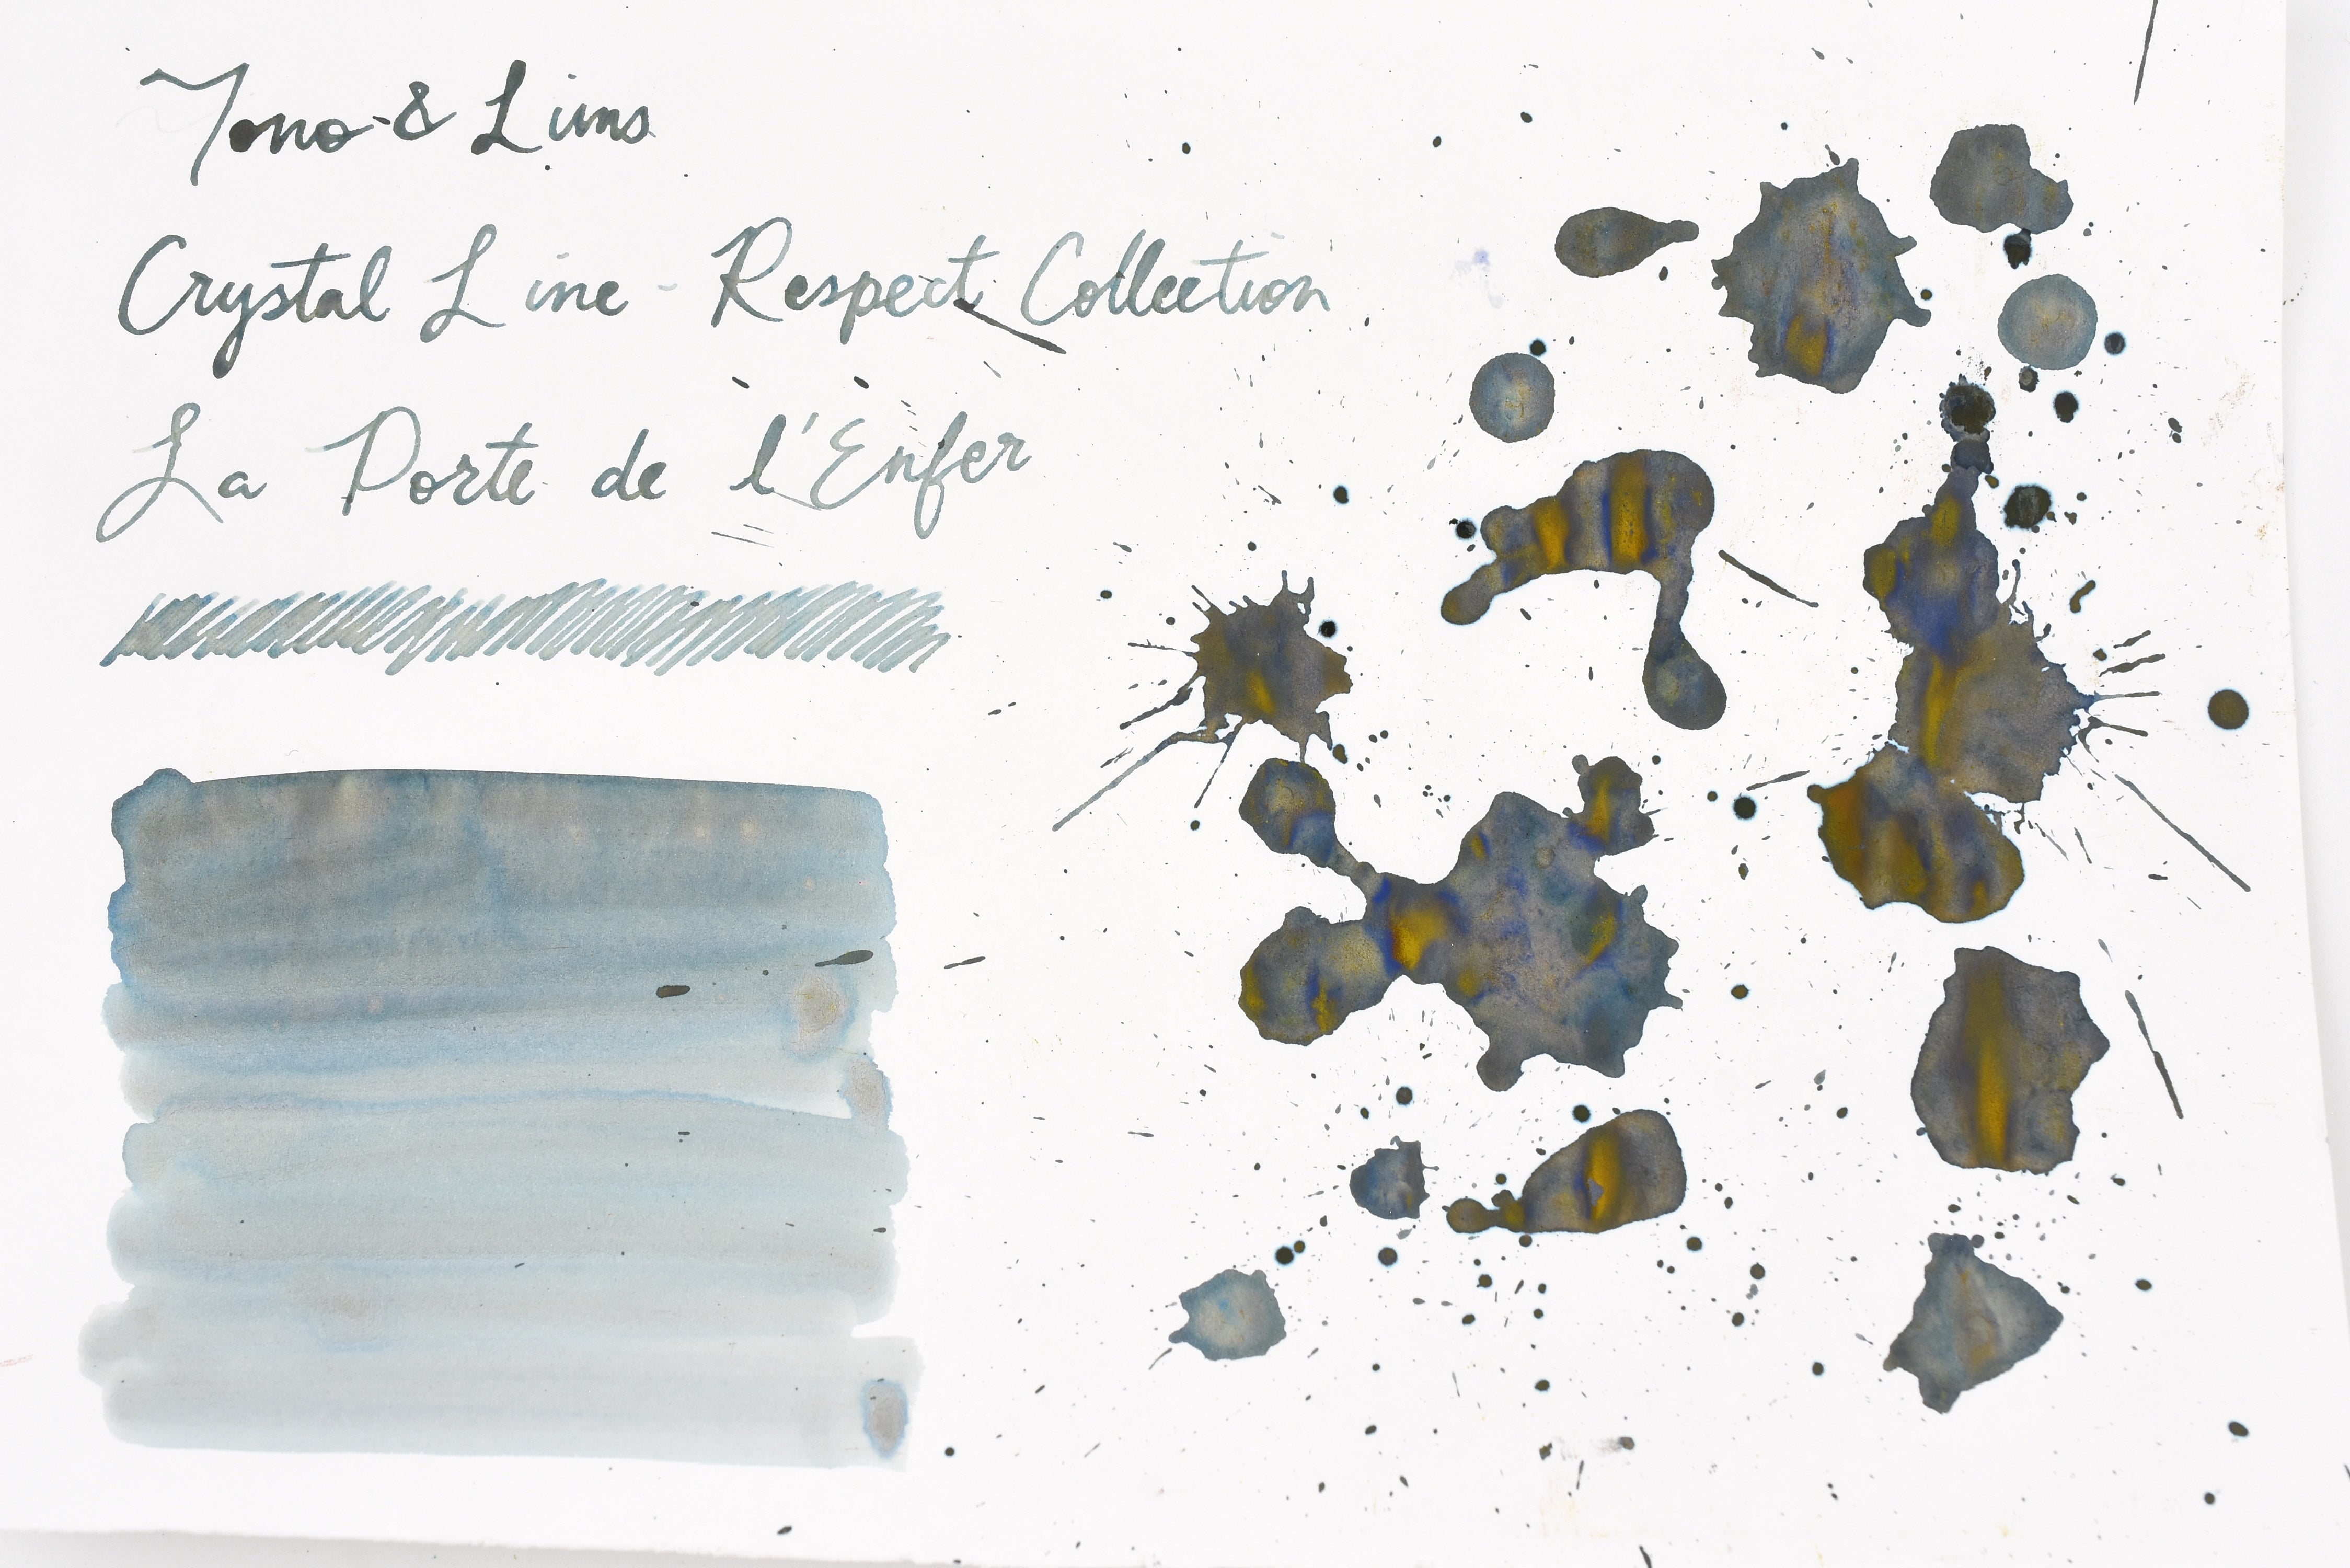 Tono & Lims
Crystal Line - Respect Collection
La Porte de l'Enfer